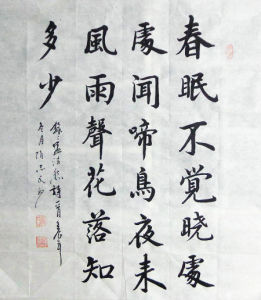 春眠不覺晓處
處聞啼鳥夜来
風雨聲花落知
多少
孟浩然詩
冬月